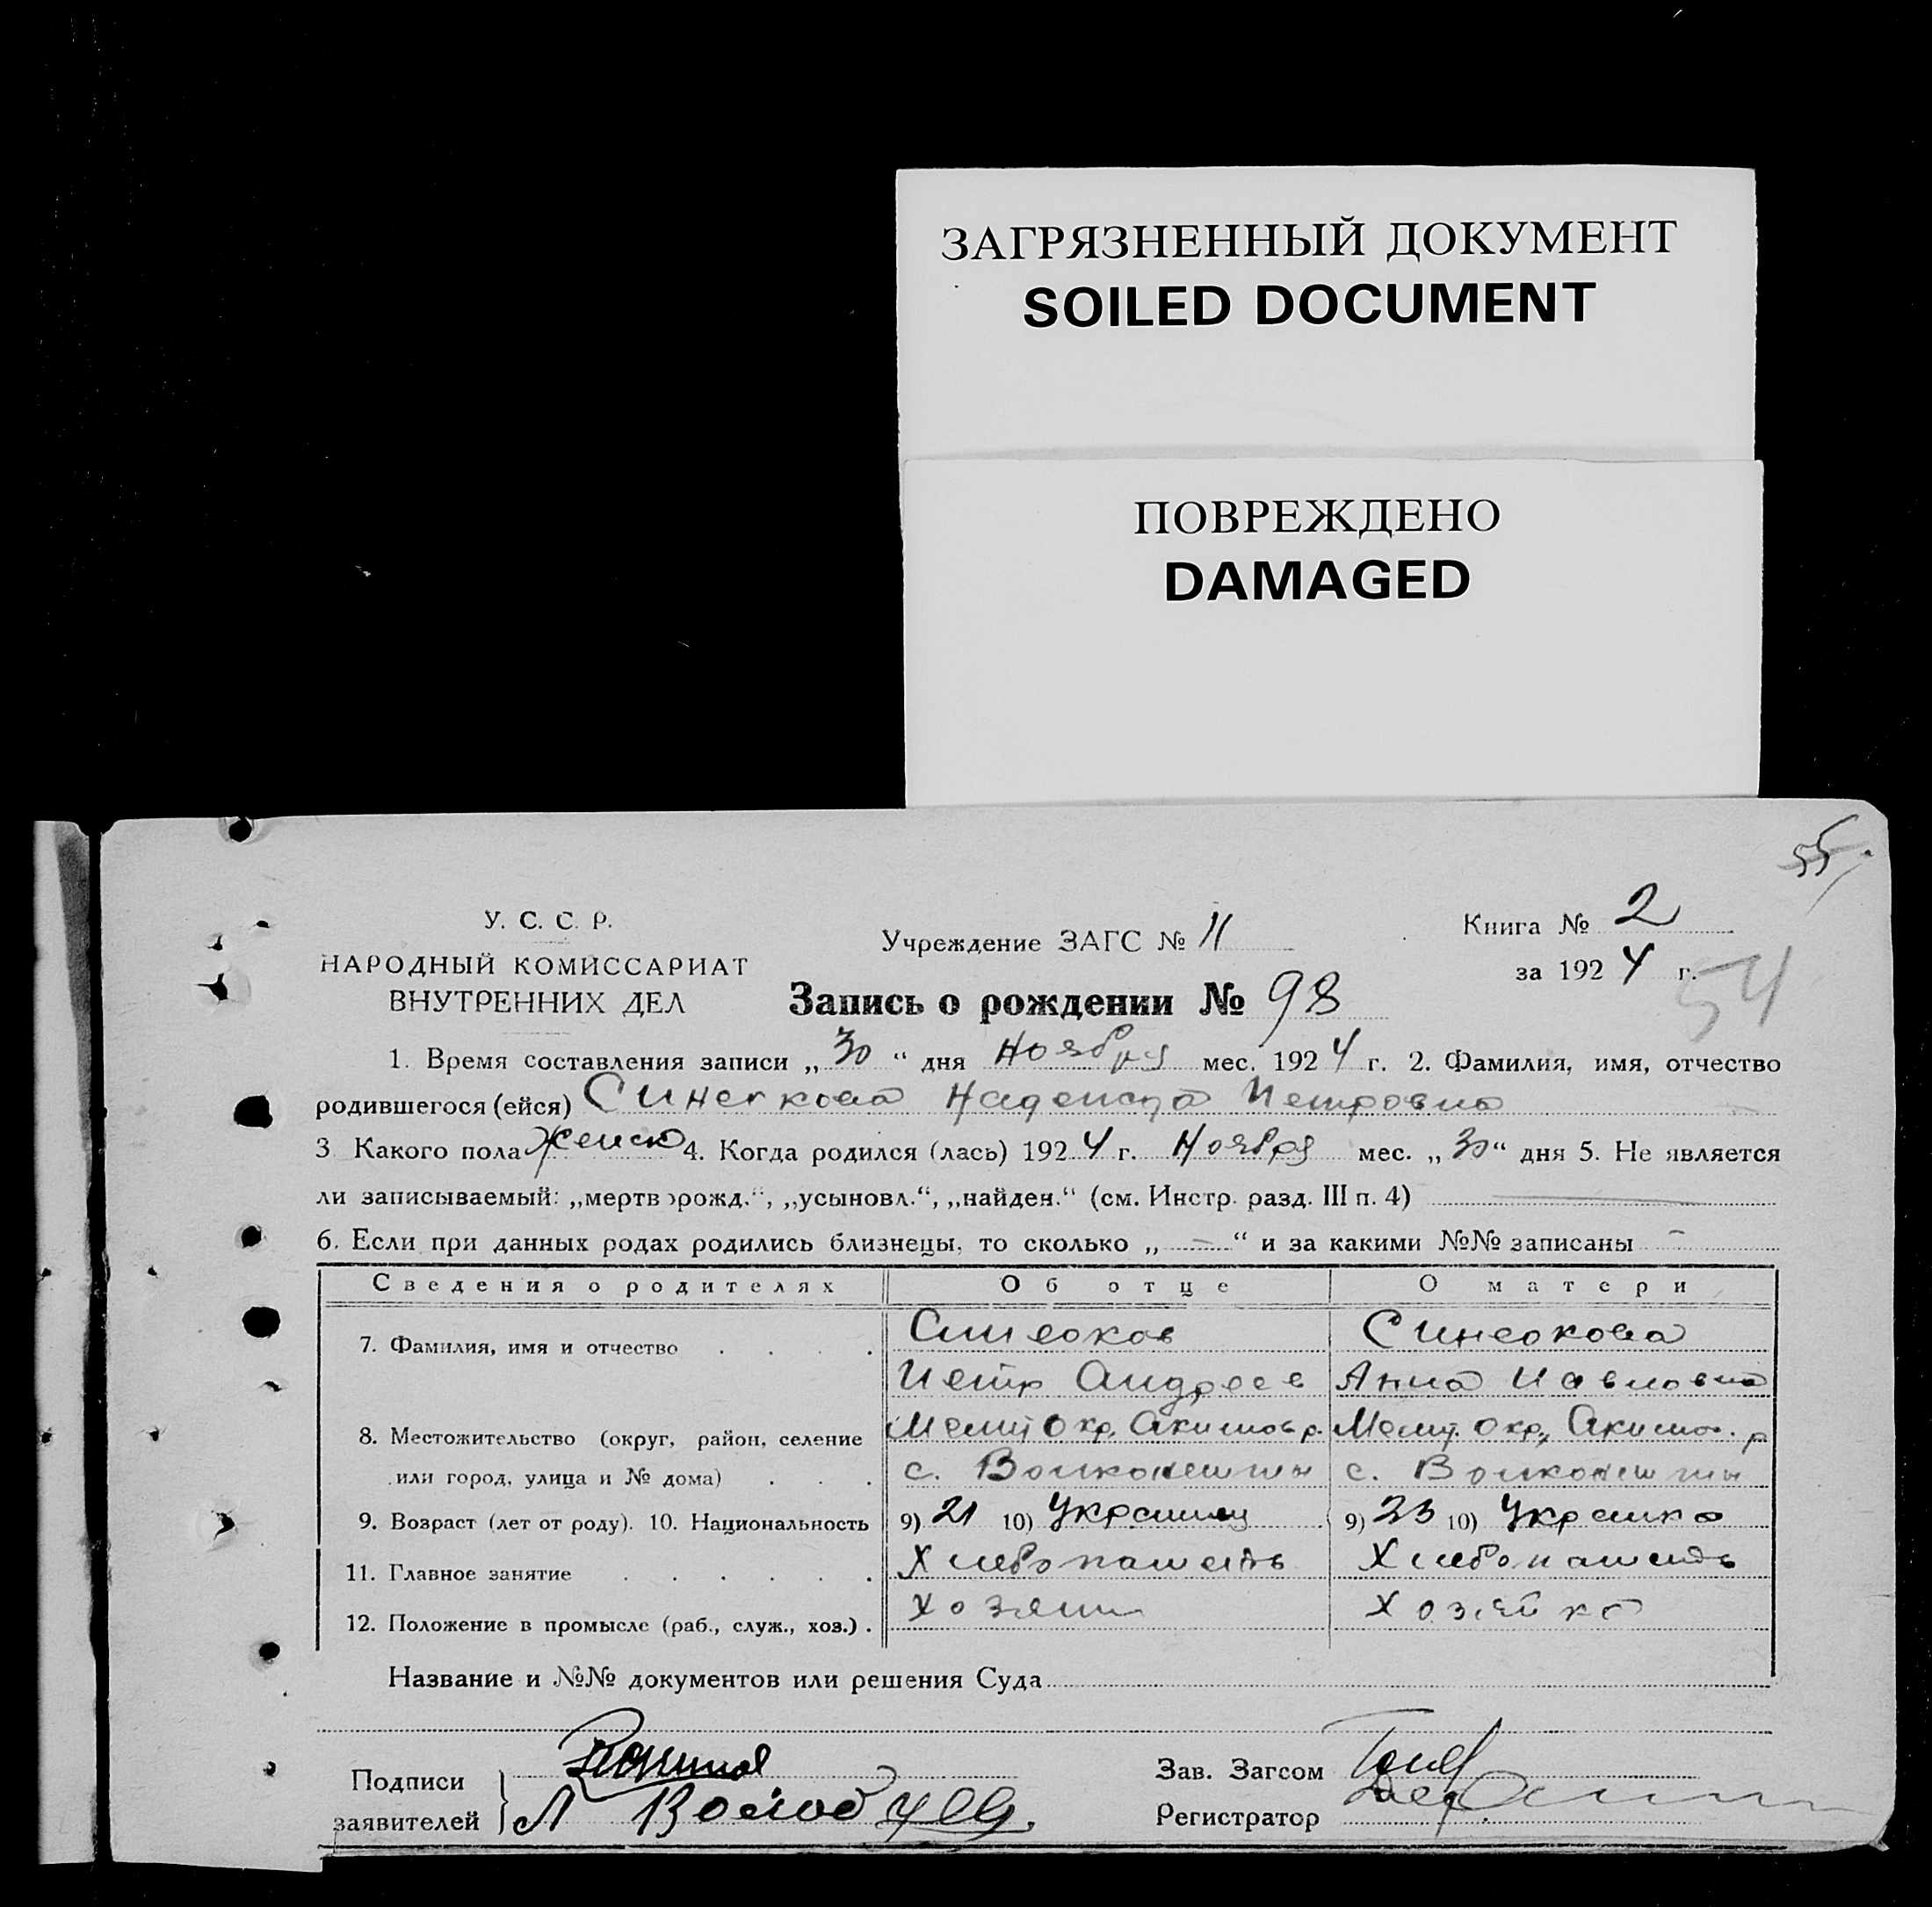 ЗАГРЯЗНЕННЫЙ ДОКУМЕНТ
SOILED DOCUMENT
ПОВРЕЖДЕНО
DAMAGED
55
У. С. С. Р.
НАРОДНЫЙ КОМИССАРИАТ
ВНУТРЕННИХ ДЕЛ
Учреждение ЗАГС № 11
Книга № 2
за 1924 г.
54
Запись о рождении № 98
1. Время составления записи „30“ дня Ноября мес. 1924 г. 2. Фамилия, имя, отчество
родившегося (ейся) Надежда Петровна
3 Какого пола женск 4. Когда родился (лась) 1924 г. Ноября мес. „30“ дня 5. Не является
ли записываемый: „мертворожд.“, „усыновл.“, „найден.“ (см. Инстр. разд. III п. 4)
6. Если при данных родах родились близнецы, то сколько „ — “ и за какими №№ записаны —
Сведения о родителях Об отце О матери
7. Фамилия, имя и отчество . . . . Синеоков Синеокова
Петр Андреев Анна Павловна
8. Местожительство (округ, район, селение Мелит Окр. Акимов р. Мелит. Окр., Акимов. р
или город, улица и № дома) . . . с. с.
9. Возраст (лет от роду). 10. Национальность 9) 21 10) Украинец 9) 23 10) Украинка
11. Главное занятие . . . . . . Хлебопашество Хлебопашество
12. Положение в промысле (раб., служ., хоз.) . хозяин хозяйка
Название и №№ документов или решения Суда
Подписи
заявителей
Зав. Загсом
Регистратор